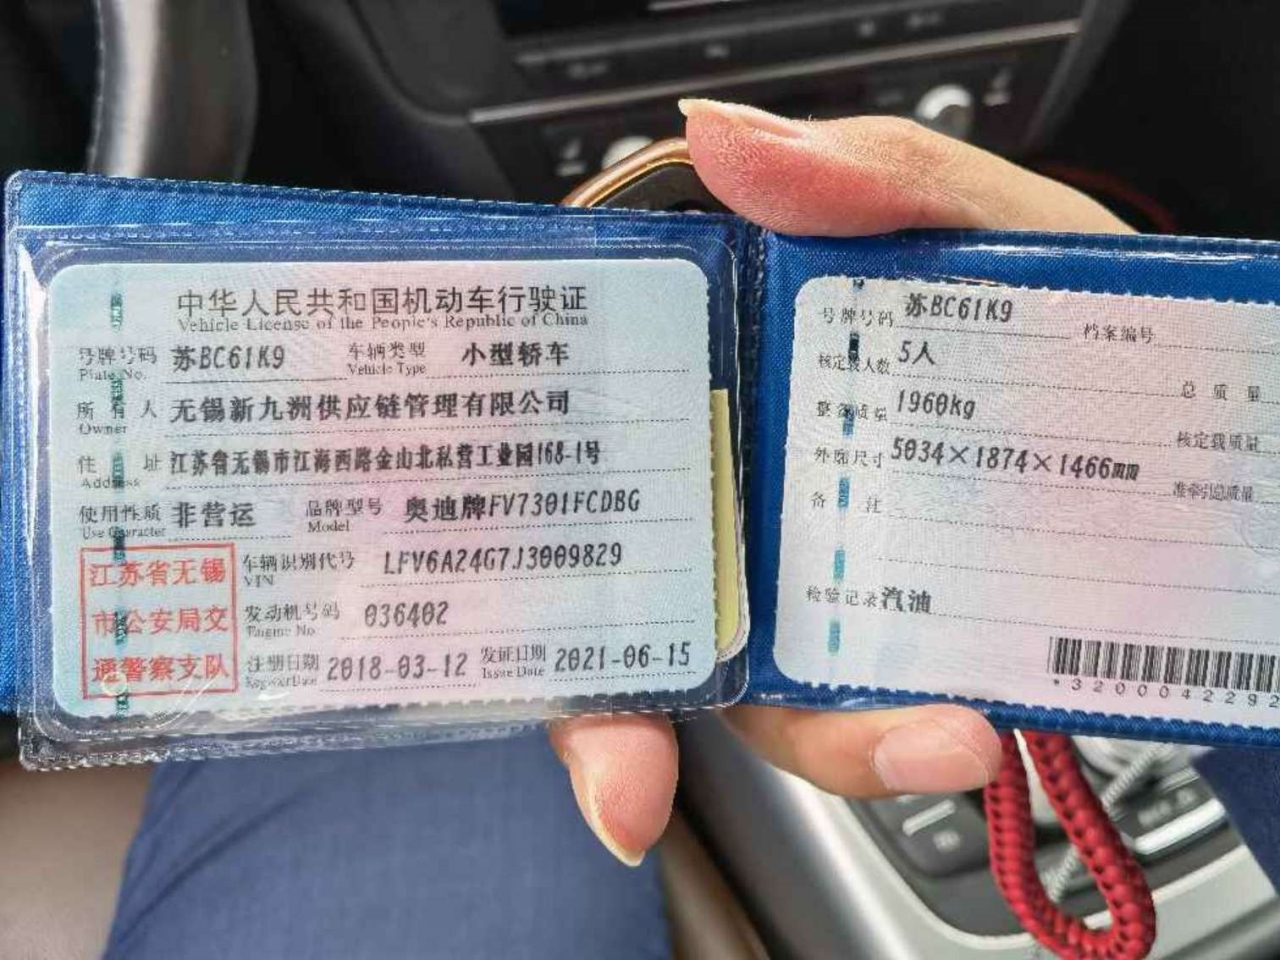 中华人民共和国机动车行驶证
Vehicle License of the People's Republic of China
号牌号码 苏BC61K9 车辆类型 小型轿车
Plate No. Vehicle Type
所有人 无锡新九洲供应链管理有限公司
Owner
住址 江苏省无锡市江海西路金山北私营工业园168-1号
Address
使用性质 非营运 品牌型号 奥迪牌FV7301FCDBG
Use Character Model
江苏省无锡
市公安局交
通警察支队
车辆识别代号 LFV6A24G7J3009829
VIN
发动机号码 036402
Engine No.
注册日期 2018-03-12 发证日期 2021-06-15
Register Date Issue Date
号牌号码 苏BC61K9 档案编号
核定载人数 5人 总质量
整备质量 1960kg 核定载质量
外廓尺寸 5034×1874×1466mm 准牵引总质量
备注
检验记录 汽油
*3200042292